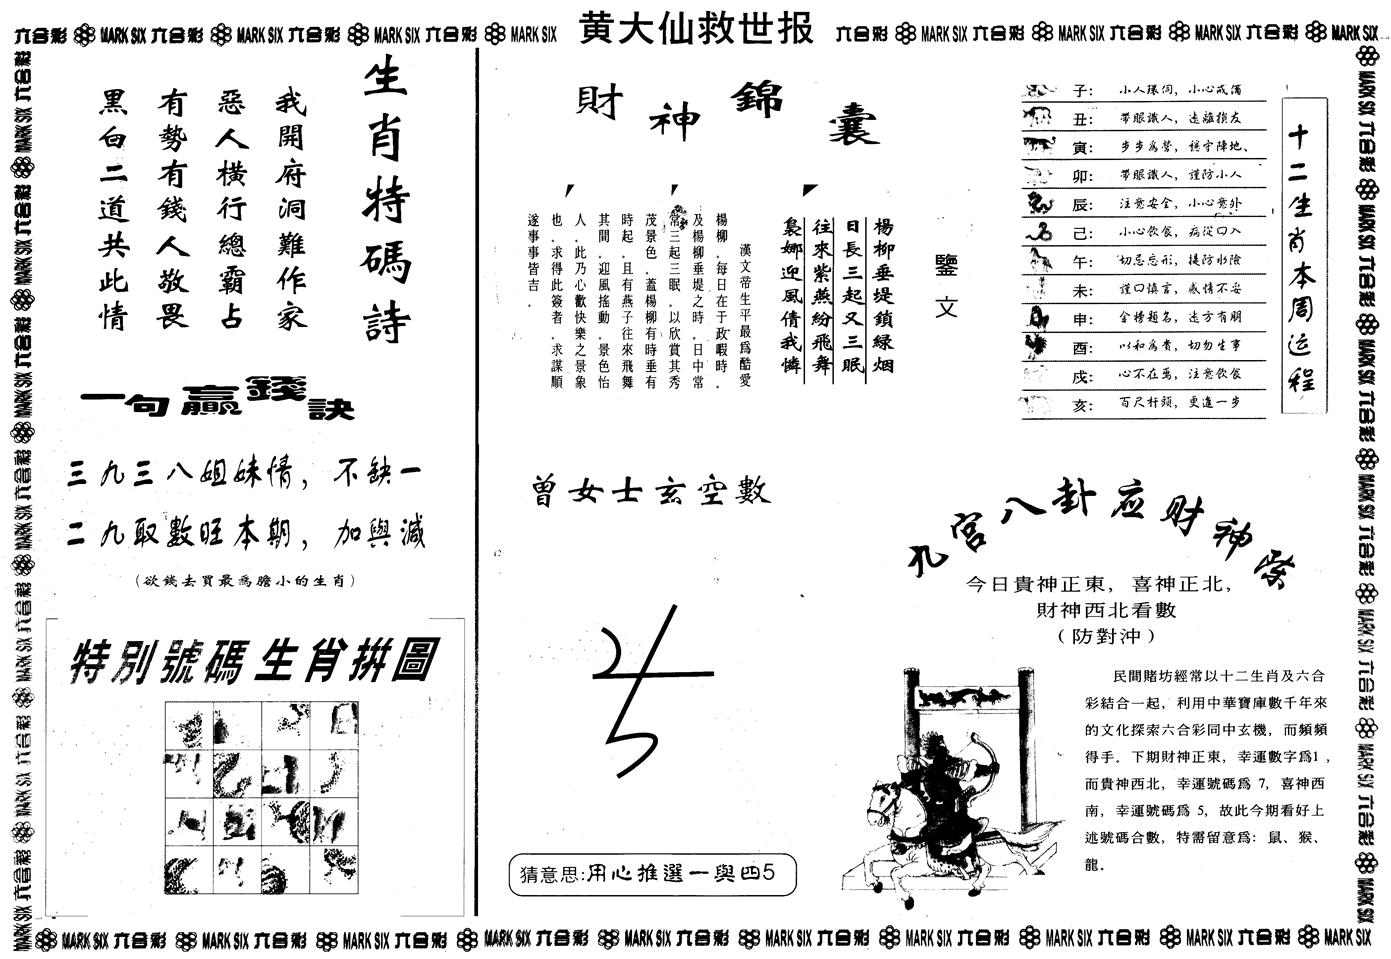 六合彩 MARK SIX 六合彩 MARK SIX 六合彩 MARK SIX 六合彩 MARK SIX
黄大仙救世报
六合彩 MARK SIX 六合彩 MARK SIX 六合彩 MARK SIX 六合彩 MARK SIX
生肖特碼詩
我開府洞難作家
惡人橫行總霸占
有勢有錢人敬畏
黑白二道共此情
一句贏錢訣
三九三八姐妹情，不缺一
二九取數旺本期，加與減
（欲錢去買最爲膽小的生肖）
特別號碼生肖拼圖
財神錦囊
鑒文
楊柳垂堤鎖緑烟
日長三起又三眠
往來紫燕紛飛舞
裊娜迎風倩我憐
漢文帝生平最爲酷愛
楊柳．每日在于政暇時．
及楊柳垂堤之時．日中常
常三起三眠．以欣賞其秀
茂景色．蓋楊柳有時垂有
時起．且有燕子往來飛舞
其間．迎風搖動．景色怡
人．此乃心歡快樂之景象
也．求得此簽者．求謀順
遂事事皆吉．
曾女士玄空數
猜意思:用心推選一與四5
十二生肖本周运程
子： 小人環伺，小心戒濁
丑： 帶眼識人，遠離損友
寅： 步步爲營，穩守陣地、
卯： 帶眼識人，謹防小人
辰： 注意安全，小心意外
己： 小心飲食，病從口入
午： 切忌忘形，提防水險
未： 謹口慎言，感情不妥
申： 金榜題名，遠方有朋
酉： 以和爲貴，切勿生事
戌： 心不在焉，注意飲食
亥： 百尺杆頭，更進一步
九宫八卦应财神
今日貴神正東，喜神正北，
財神西北看數
（防對沖）
民間賭坊經常以十二生肖及六合
彩結合一起，利用中華寶庫數千年來
的文化探索六合彩同中玄機，而頻頻
得手．下期財神正東，幸運數字爲1，
而貴神西北，幸運號碼爲 7，喜神西
南，幸運號碼爲 5，故此今期看好上
述號碼合數，特需留意爲：鼠、猴、
龍．
MARK SIX 六合彩 MARK SIX 六合彩 MARK SIX 六合彩 MARK SIX 六合彩 MARK SIX 六合彩 MARK SIX 六合彩 MARK SIX 六合彩 MARK SIX 六合彩 MARK SIX 六合彩 MARK SIX